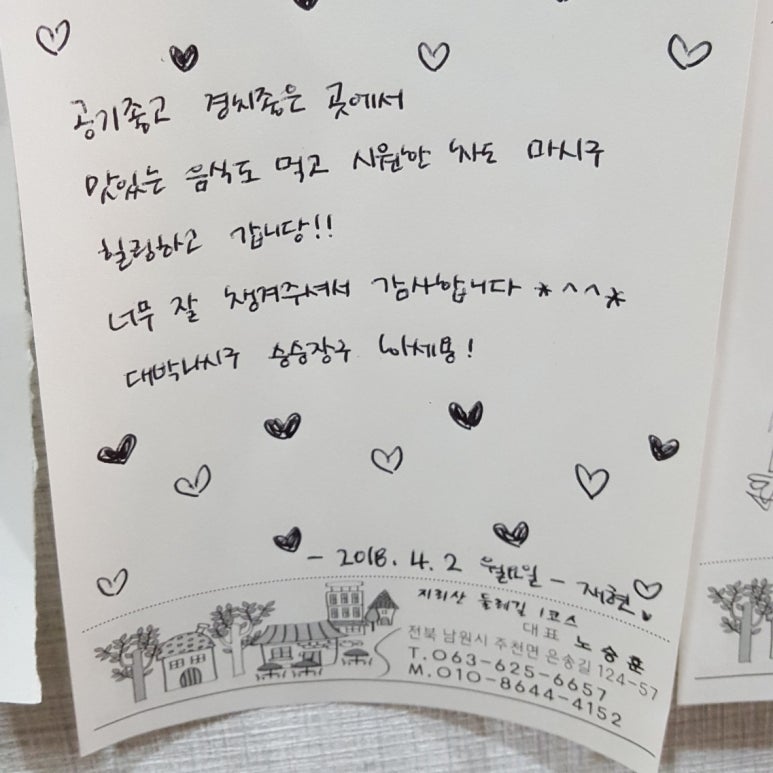 공기좋고 경치좋은 곳에서
맛있는 음식도 먹고 시원한 차도 마시구
힐링하고 갑니당!!
너무 잘 챙겨주셔서 감사합니다 *^^*
대박나시구 승승장구 하세용!
- 2018. 4. 2 월요일 - 재현
지리산 둘레길 1코스
대표 노승훈
전북 남원시 주천면 은송길 124-57
T. 063-625-6657
M. 010-8644-4152